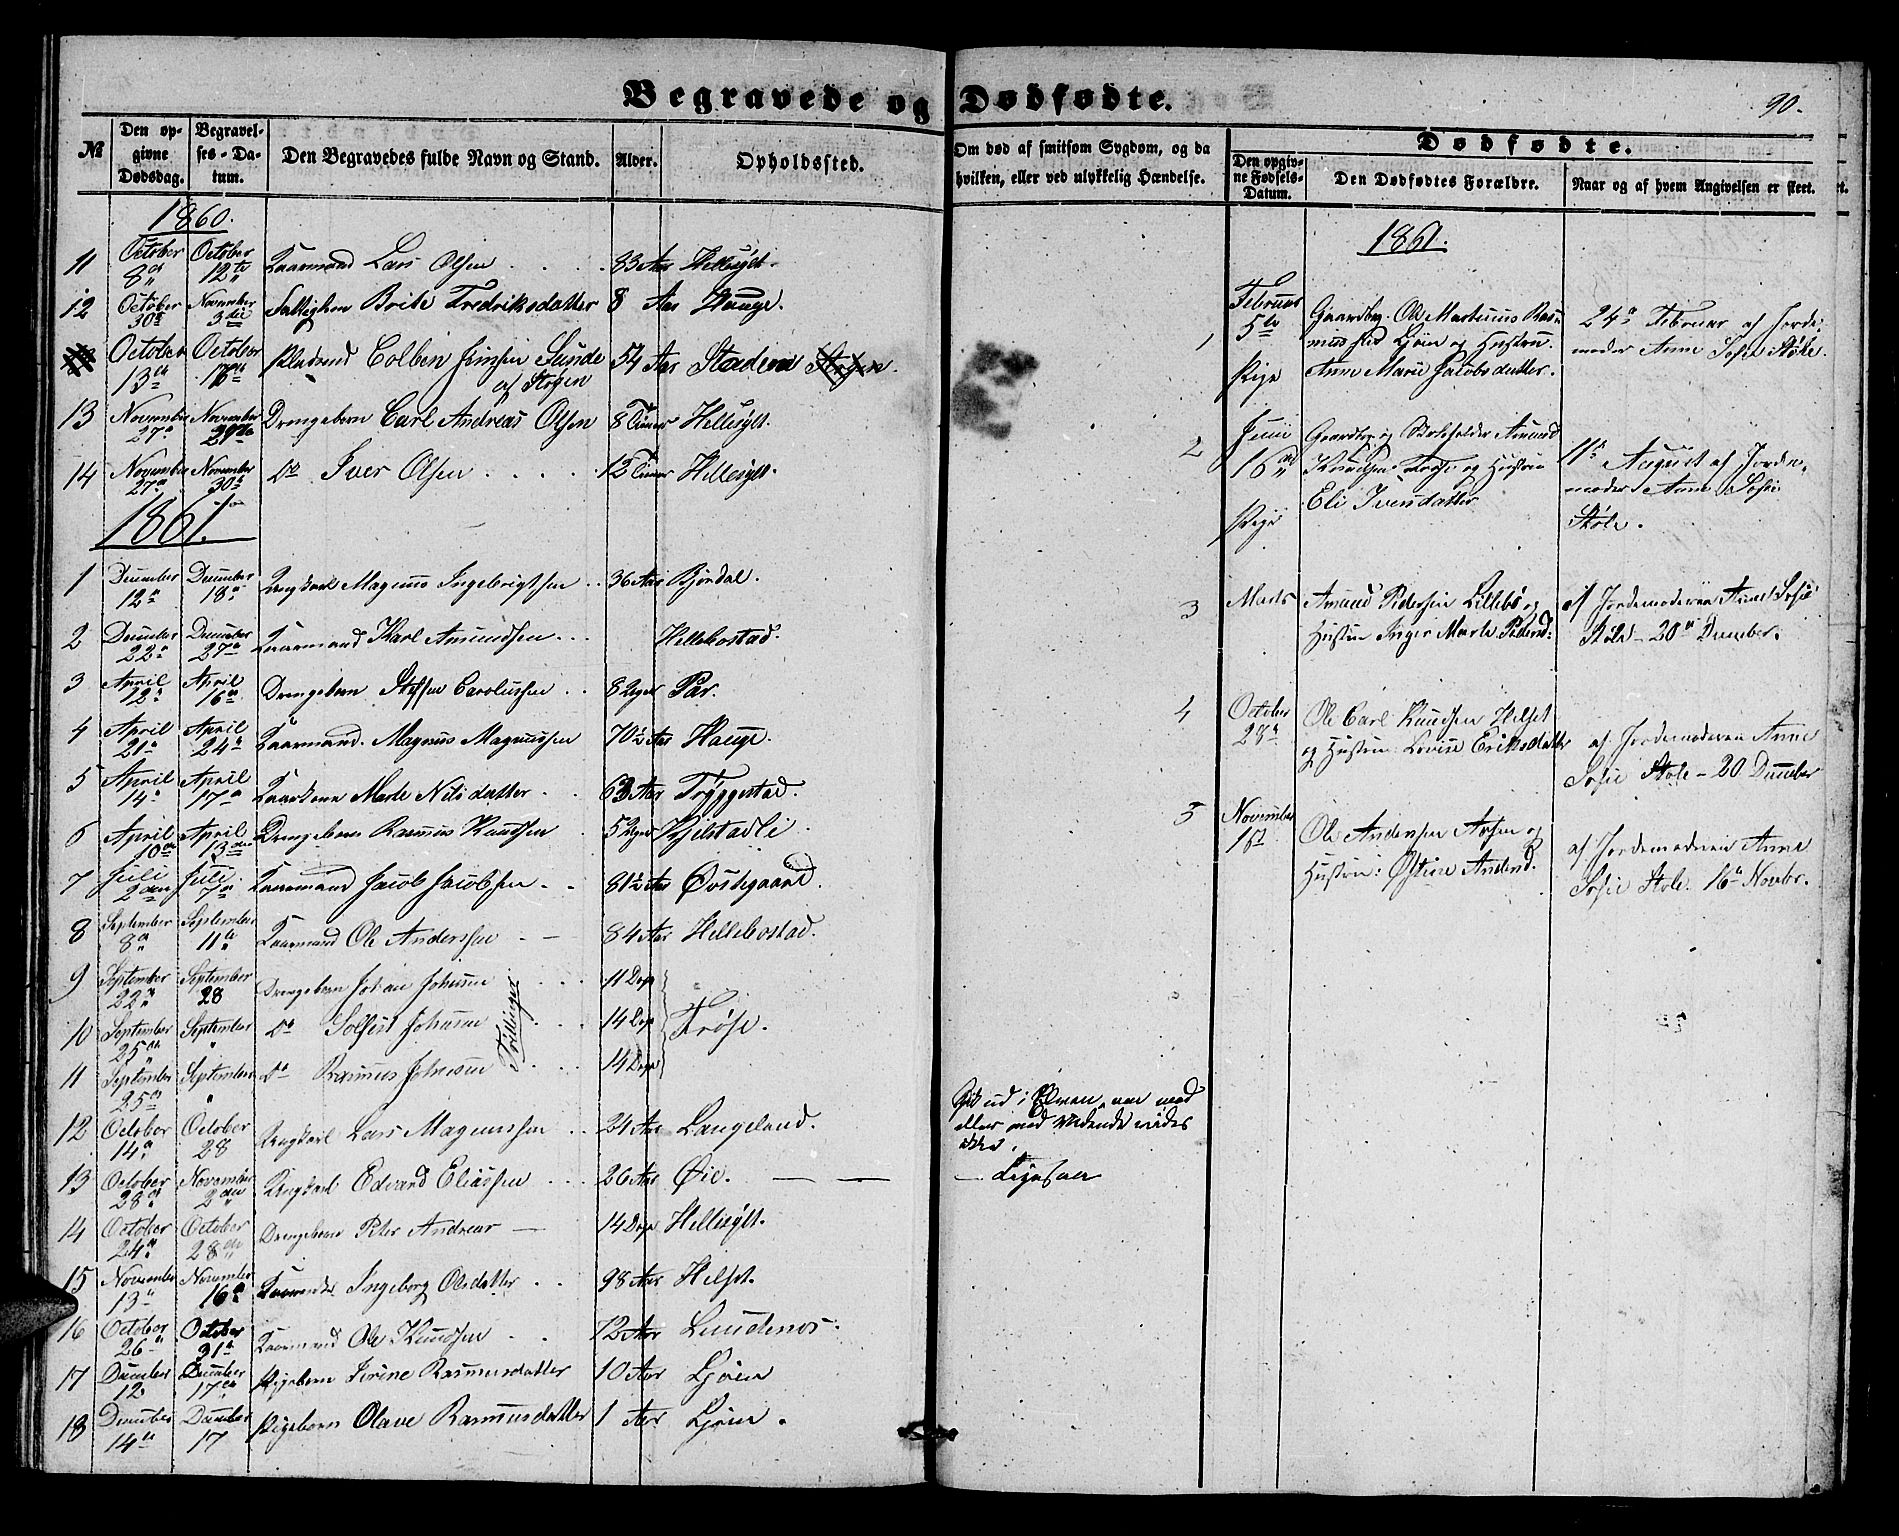 Begravede og Dødfødte.
90.
No
Den opgivne Dødsdag.
Begravelses-Datum.
Den Begravedes fulde Navn og Stand.
Alder.
Opholdssted.
Om død af smitsom Sygdom, og da
hvilken, eller ved ulykkelig Hændelse.
Dødfødte.
Den opgivne Fødsels-Datum.
Den Dødfødtes Forældre.
Naar og af hvem Angivelsen er skeet.
1860.
11 October 8de October 12te Kaarmand Lars Olsen 83 Aar Hellesylt.
12 October 30te November 3die Brite Fredriksdatter 8 Aar Hauge.
October 13de October Colben Jensen Sunde 54 Aar Stadem
af Stogen
13 November 27de November 29de Drengebarn Carl Andreas Olsen 8 Timer Hellesylt.
14 November 27de November 30te Do Iver Olsen 12 Timer Hellesylt.
1861.
1 December 12te December 18de Ungkarl Magnus Ingebrigtsen 36 Aar Bjørdal.
2 December 22de December 27de Kaarmand Karl Amundsen Hellebostad.
3 April 12te April 16de Drengebarn Steffen Carolussen 8 Uger Par.
4 April 21de April 24de Kaarmand Magnus Magnussen 70½ Aar Hauge.
5 April 14de April 17de Kaarkone Marte Nilsdatter 63 Aar Tryggestad.
6 April 10de April 13de Drengebarn Rasmus Knudsen 5 Uger Kjelstadli
7 Juli 2den Juli 7de Kaarmand Jacob Jacobsen 81½ Aar Øvstegaard.
8 September 8de September 11te Kaarmand Ole Anderssen 84 Aar Hellebostad.
9 September 22de September 28 Drengebarn Johan Johnsen 11 Dage
10 September 25de September " Do Solfest Johnsen Trillinger 14 Dage Frøse.
11 September 25de September " Do Rasmus Johnsen 14 Dage
12 October 14de October 28 Ungkarl Lars Magnussen 24 Aar Langeland.
13 October 28de November 2den Ungkarl Edvard Eliassen 26 Aar Øie.
14 October 24de October 28de Drengebarn Peter Andreas 14 Dage Hellesylt.
15 November 13de November 16de Ingeborg Olsdatter 98 Aar Helset.
16 October 26de October 31te Kaarmand Ole Knudsen 72 Aar
17 December 12 December 17de Pigebarn Sirine Rasmusdatter 10 Aar Ljøen
18 December 14de December 17 Pigebarn Olave Rasmusdatter 1 Aar Ljøen.
Gik ud i Elven, om med
eller mod Vidende vides
ikke.
1861.
1 Februar 5te Pige
Gaardbr. Ole Martinus Rasmussen Ljøen og Hustru
Anne Marie Jacobsdatter.
24de Februar af Jordemoder Anne Sofie Støle.
2 Juni 16de Pige
Gaardbr. og Amund
Knudsen Frøse og Hustru
Eli Iversdatter
11te August af Jordemoder Anne Sofie
Støle.
3 Marts
Amund Pedersen Lillebø og
Hustru Inger Marte Pedersd:
af Jordemoderen Anne Sofie
Støle - 20de December.
4 October 28de
Ole Carl Knudsen Helset
og Hustru Lovise Eriksdatter
af Jordemoderen Anne
Sofie Støle - 20 December
5 November 1st
Ole Andersen Aasen og
Hustru: Østine Andersd.
af Jordemoderen Anne
Sofie Støle. 16de Novbr.